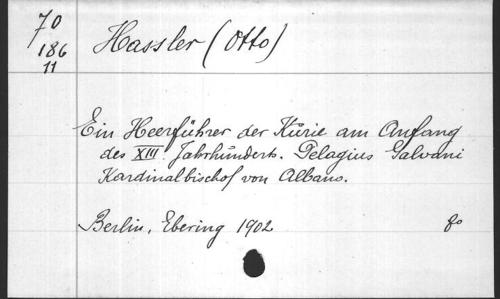 70
186
11
Hassler (Otto)
Ein Heerführer der Kurie am Anfang
des XIII. Jahrhunderts. Pelagius Galvani
Kardinalbischof von Albano.
Berlin, Ebering 1902
8°